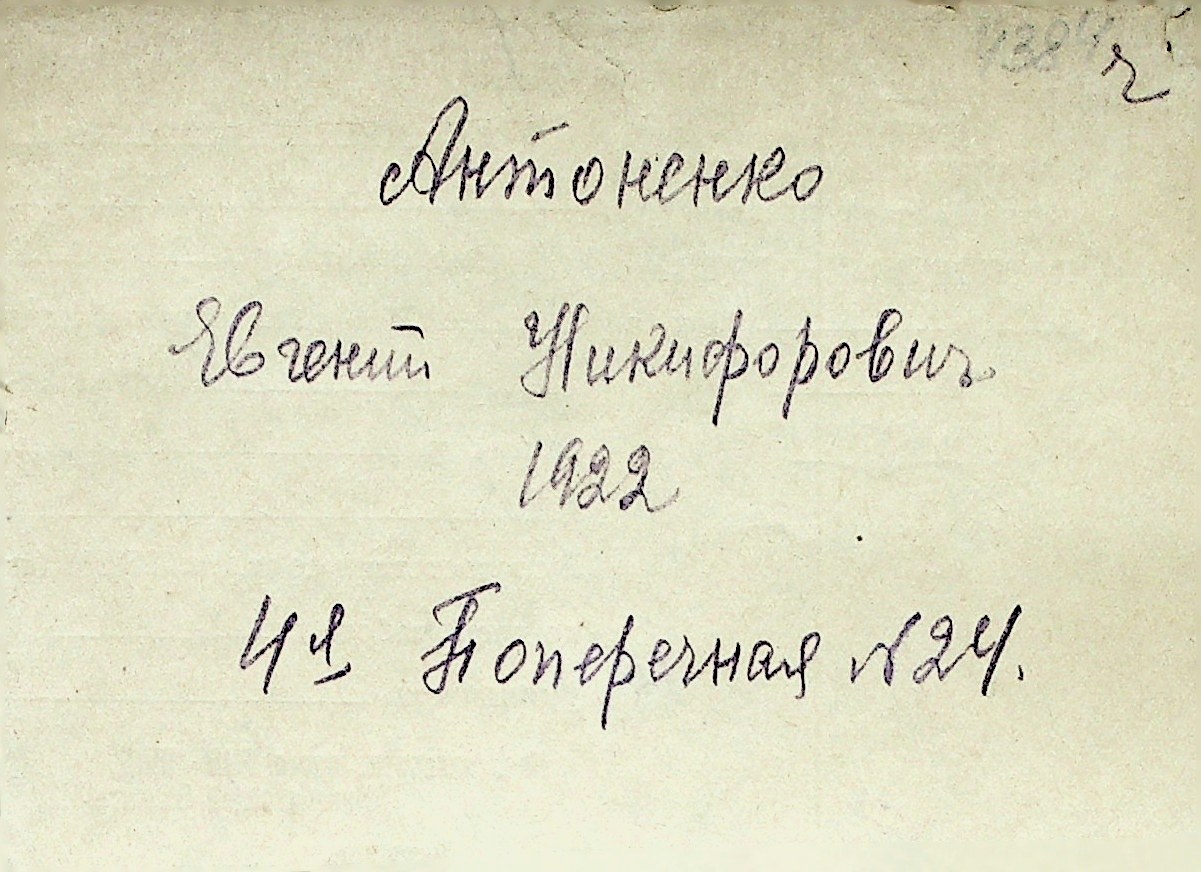 ч
Антоненко
Евгений Никифорович
1922
4я Поперечная N24.